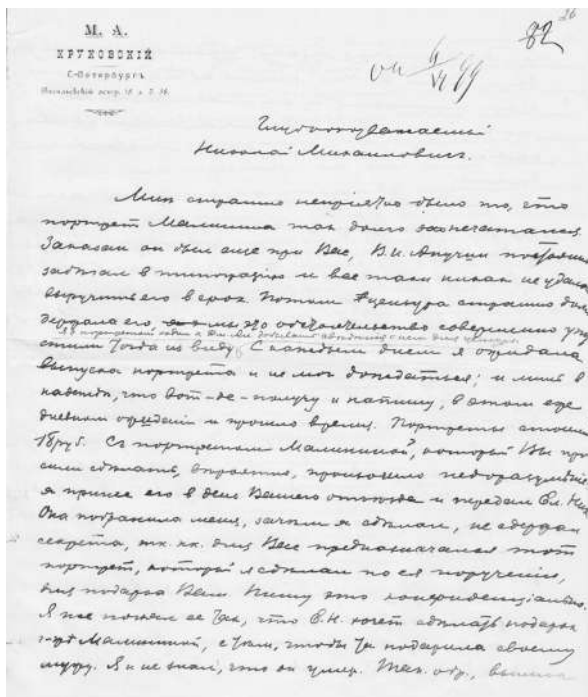 26
82
М. А.
КРУКОВСКІЙ
С-Петербургъ
6/VI 99
Глубокоуважаемый
Николай Михайлович.
Мне страшно неприятно было то, что
портрет Малинина так долго запечатался.
Заказан он был еще при Вас, В.И. Анучин
заезжал в типографию и все таки никак не
выручить его в срок. Потом цензура страшно
держала его, это обстоятельство совершенно
стили тогда из виду. С каждым днем я ожидал
выпуска портрета и не мог дождаться; и лишь в
надежде, что вот-де-получу и напишу, в этом еже
дневном ожидании и прошло время. Портреты
18 руб. С портретом Малининой, который Вы про
сили сделать, вероятно, произошло недоразумение
я принес его в день Вашего отъезда и передал Ел. Ник.
Она побранила меня, зачем я сделал, не сдержал
секрета, тк. кк. для Вас предназначался этот
портрет, который я сделал по ея поручению,
для подарка Вам. Пишу это конфиденциально.
Я же понял ее так, что Е.Н. хочет сделать подарок
г-же Малининой, с тем, чтобы та подарила своему
мужу. Я и не знал, что он умер. Так. обр.,